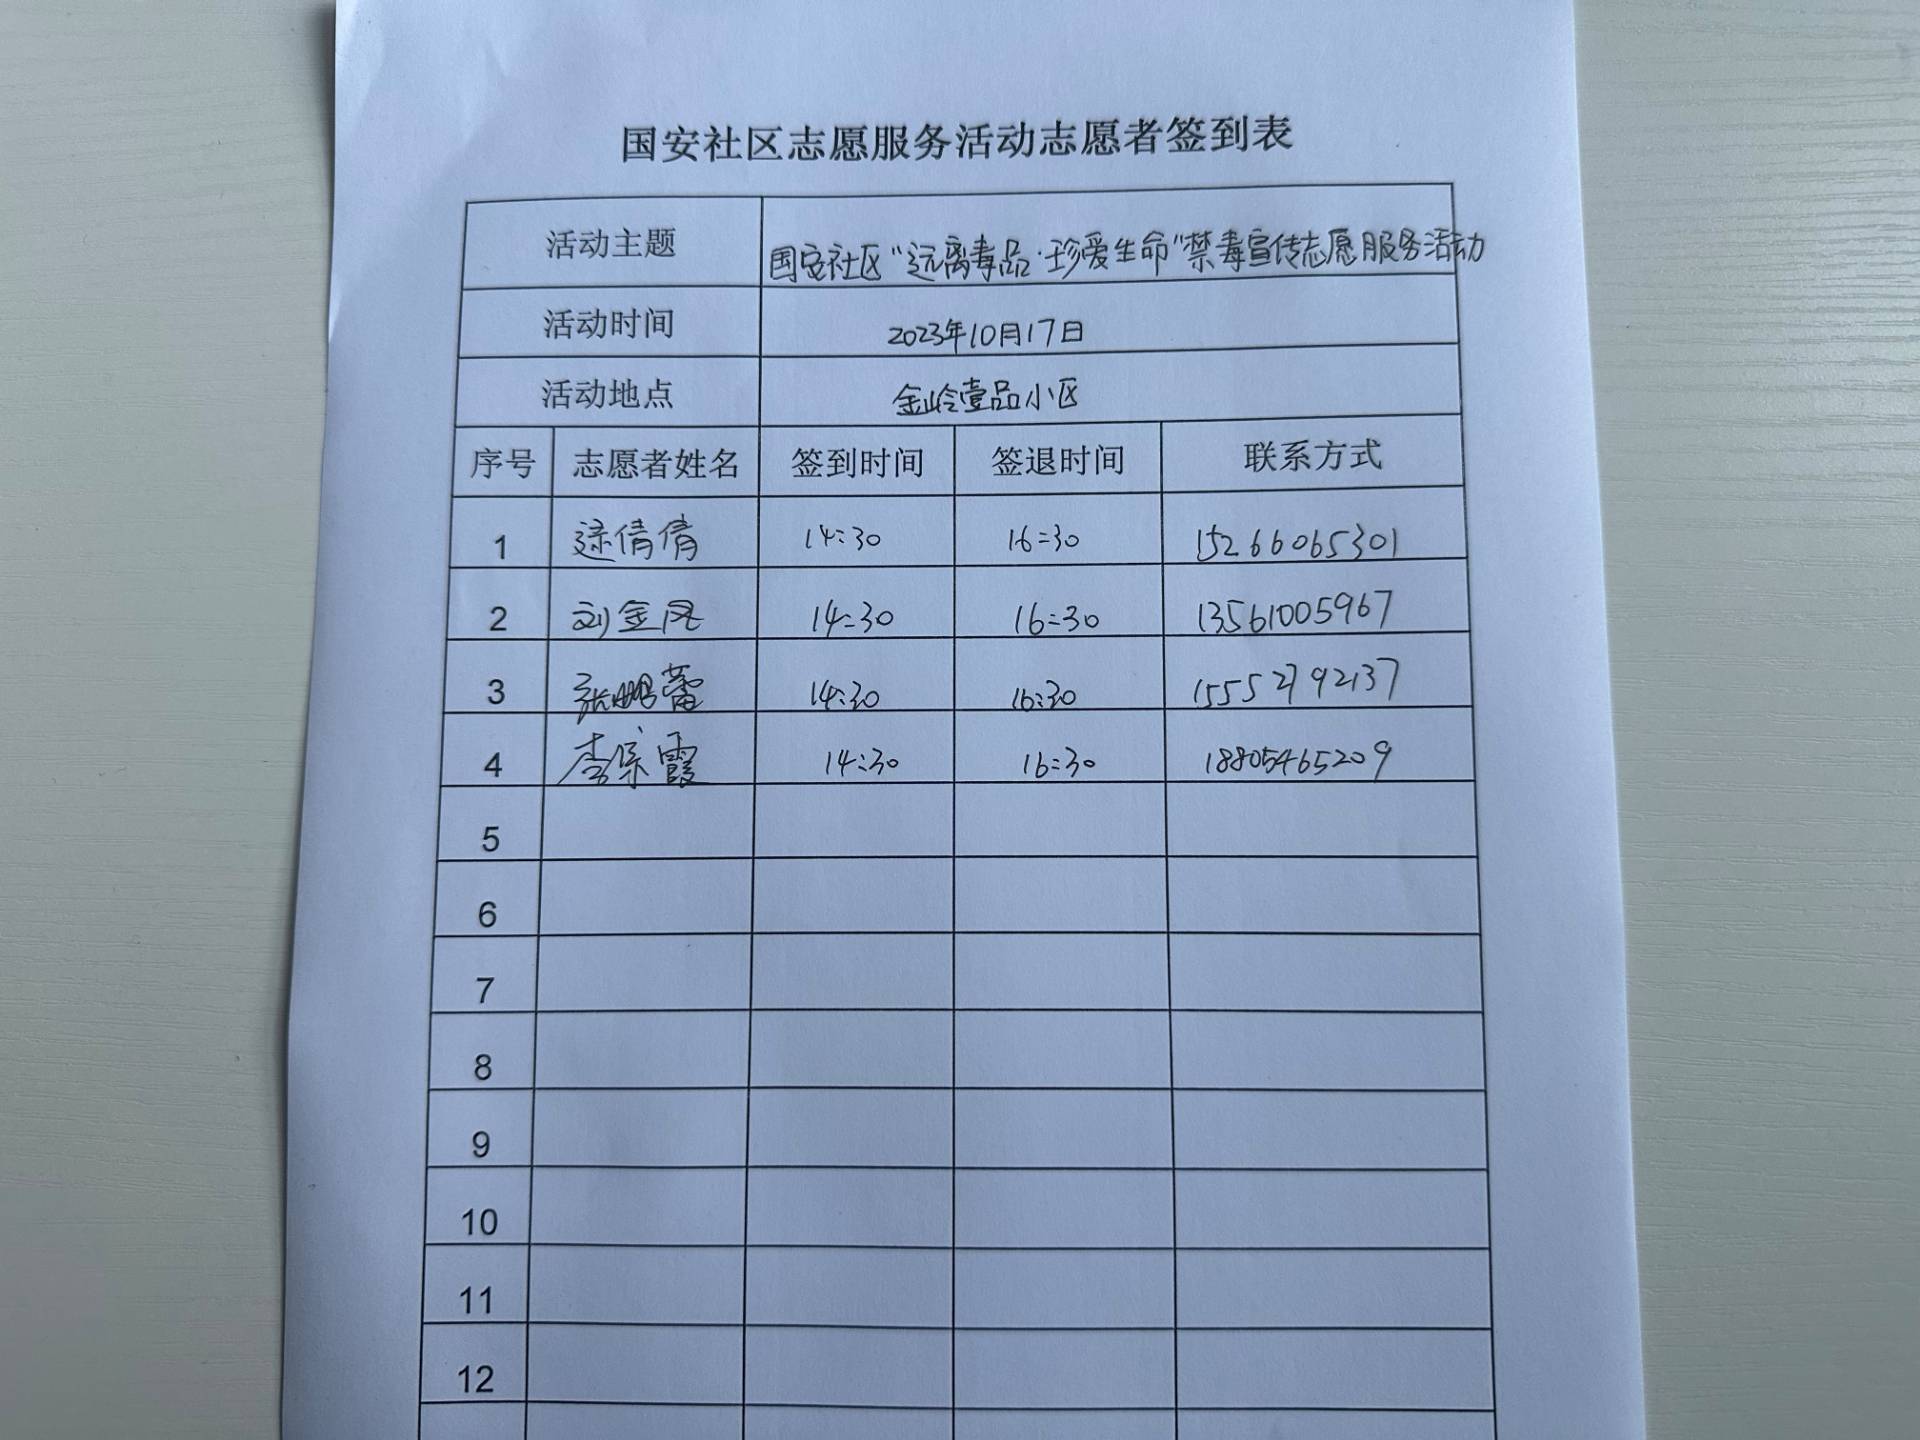 国安社区志愿服务活动志愿者签到表
活动主题 国安社区“远离毒品·珍爱生命”禁毒宣传志愿服务活动
活动时间 2023年10月17日
活动地点 金岭壹品小区
序号 志愿者姓名 签到时间 签退时间 联系方式
1 逯倩倩 14:30 16:30 15266065301
2 刘金凤 14:30 16:30 13561005967
3 张鹏蕾 14:30 16:30 15552792137
4 李保霞 14:30 16:30 18805465209
5
6
7
8
9
10
11
12